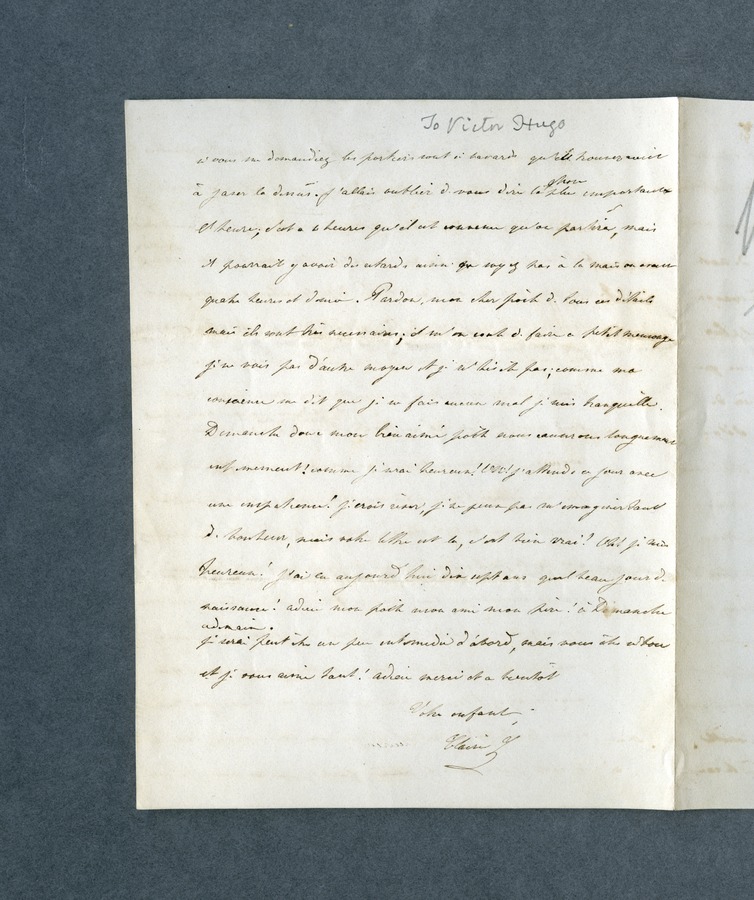 To Victor Hugo
si vous me demandiez les portiers sont si bavards qu'ils trouveraient
à jaser la dessus. J'allais oublier de vous dire la chose plus importante
l'heure, c'est a 4 heures qu'il est convenu qu'on partira, mais
il pourrait y avoir des retards ainsi ne soyez pas à la maison avant
quatre heures et demie. Pardon, mon cher poëte de tous ces détails
mais ils sont très nécessaires; il m'en coute de faire ce petit mensonge
je ne vois pas d'autre moyen et je n'hésite pas; comme ma
conscience me dit que je ne fais aucun mal je suis tranquille.
Dimanche donc mon bien aimé poëte nous causerons longuement
intimement! comme je serai heureux! Oh! j'attends ce jour avec
une impatience! je crois rêver, je ne peux pas m'imaginer tant
de bonheur, mais votre lettre est là, c'est bien vrai! Oh! je suis
heureux! J'ai eu aujourd'hui dix sept ans quel beau jour de
naissance! adieu mon poëte mon ami mon père! à Dimanche
à demain.
je serai peut être un peu intimidée d'abord, mais vous êtes si bon
et je vous aime tant! adieu merci et a bientôt
Votre enfant,
Claire